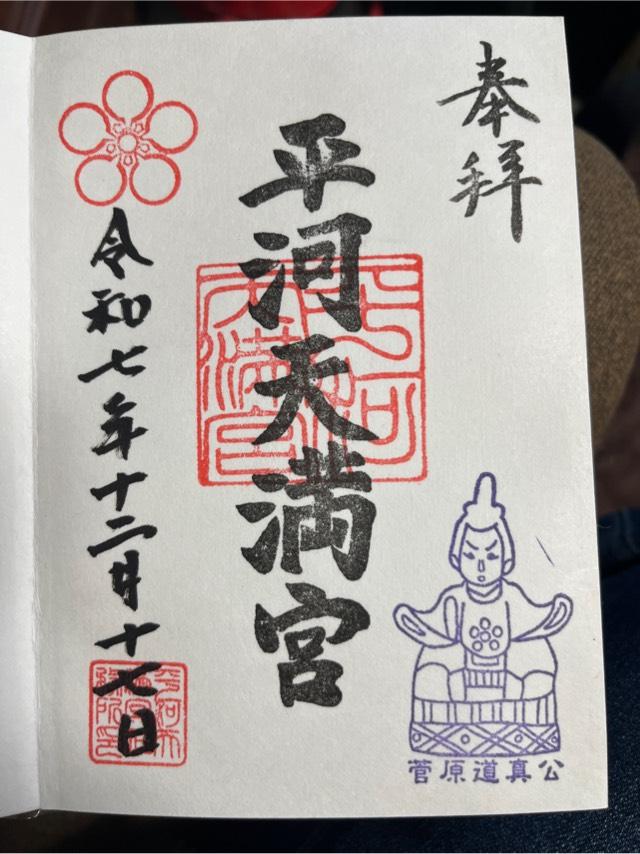 奉拝
平河天満宮
令和七年十二月十七日
菅原道真公